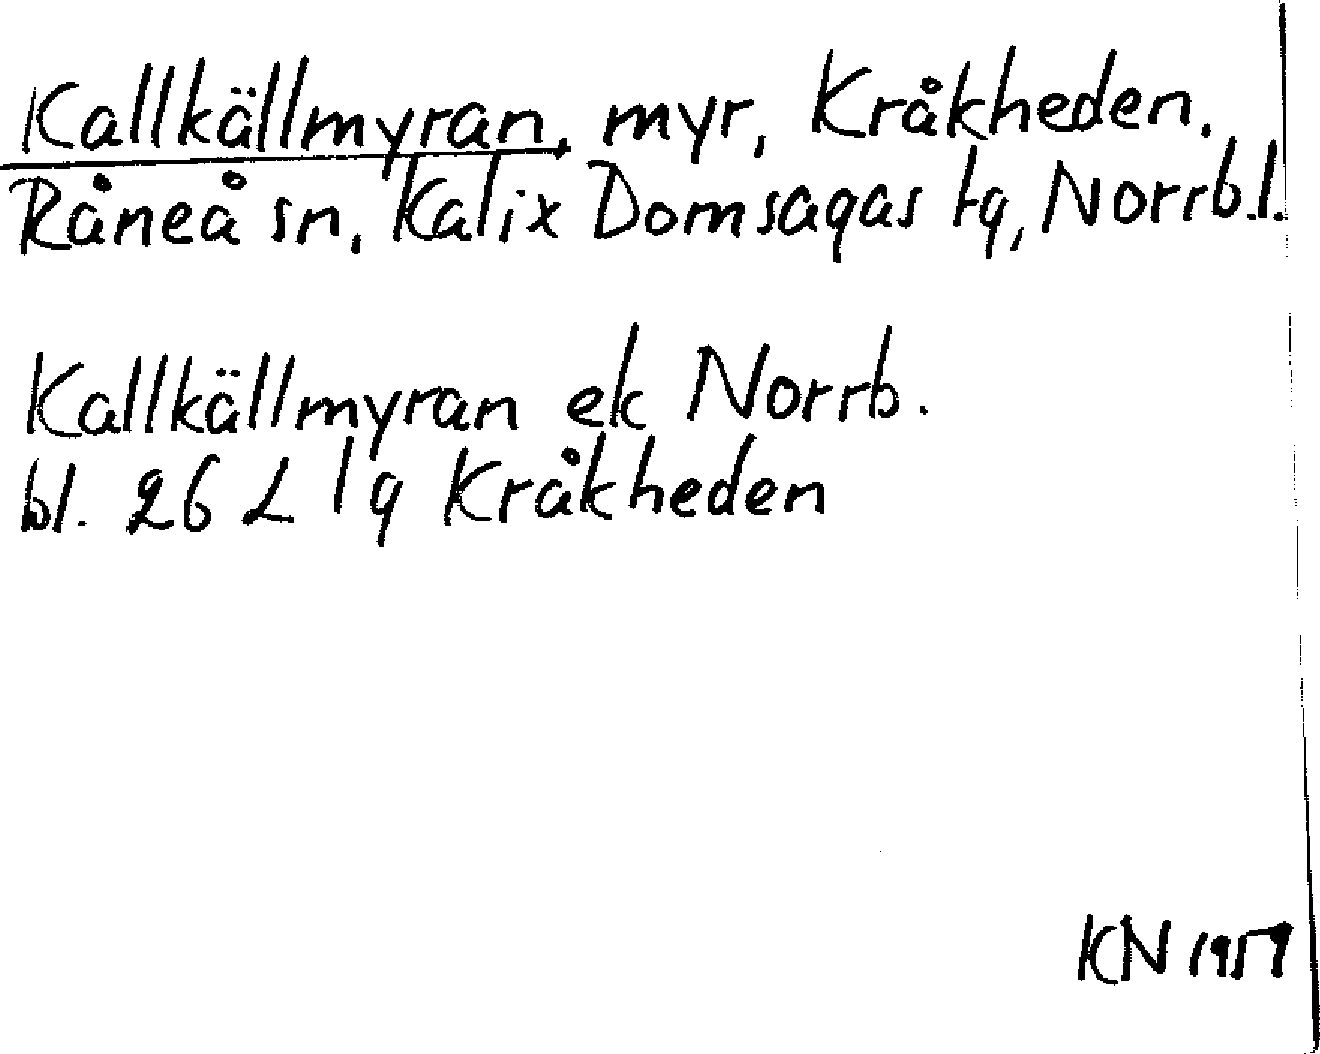 Kallkällmyran, myr, Kråkheden,
Råneå sn, Kalix Domsagas tg, Norrb.l.
Kallkällmyran ek Norrb.
bl. 26 L lg Kråkheden
KN